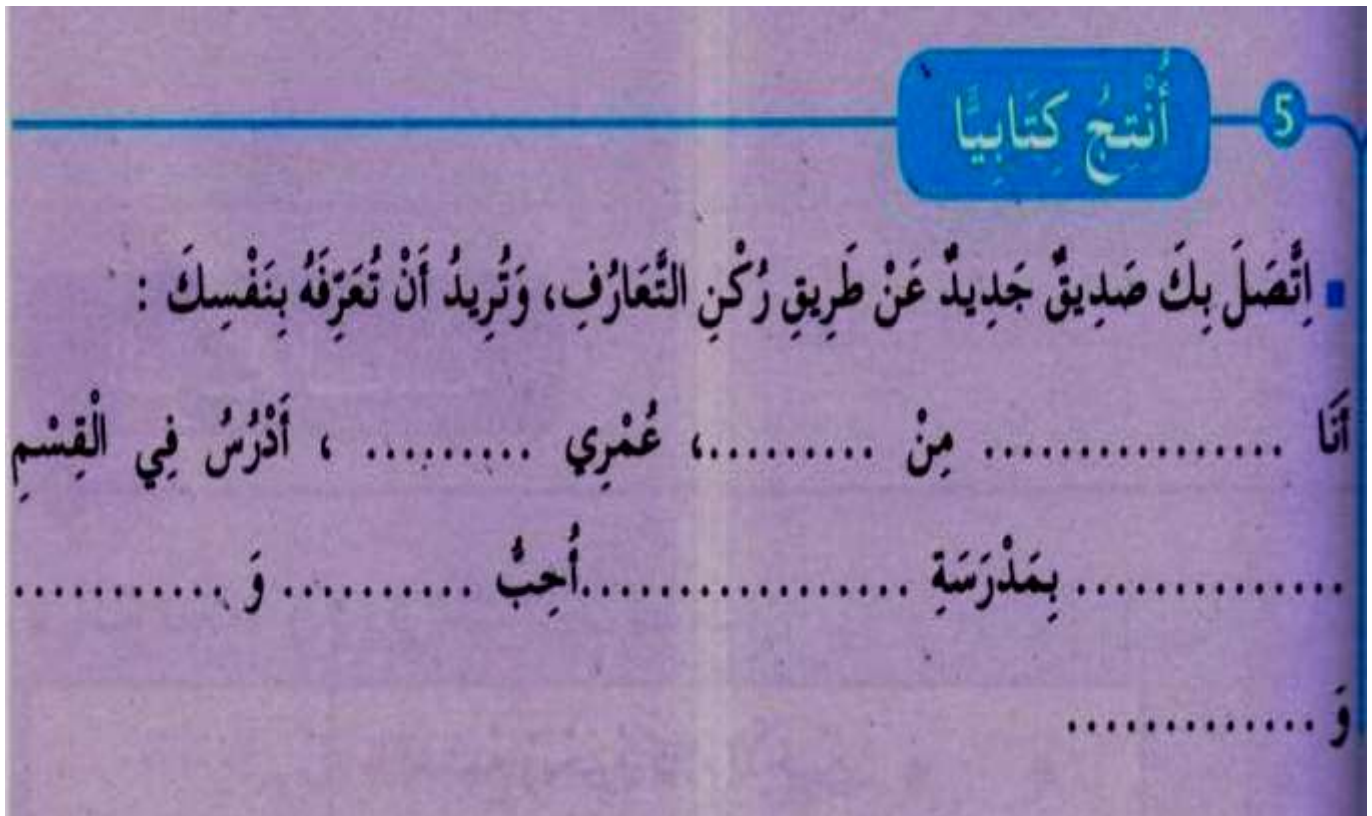 5
أُنْتِجُ كِتَابِيًّا
اِتَّصَلَ بِكَ صَدِيقٌ جَدِيدٌ عَنْ طَرِيقِ رُكْنِ التَّعَارُفِ، وَتُرِيدُ أَنْ تُعَرِّفَهُ بِنَفْسِكَ :
أَنَا ................ مِنْ .........، عُمْرِي ......... ، أَدْرُسُ فِي الْقِسْمِ
.............. بِمَدْرَسَةِ .................أُحِبُّ .......... وَ ...........
وَ .............